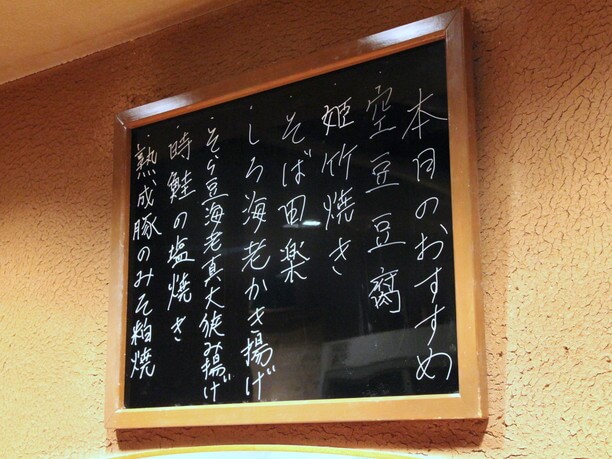 本日のおすすめ
・空豆豆腐
・姫竹焼き
・そば田楽
・しろ海老かき揚げ
・そら豆海老真丈挟み揚げ
・時鮭の塩焼き
・熟成豚のみそ粕焼